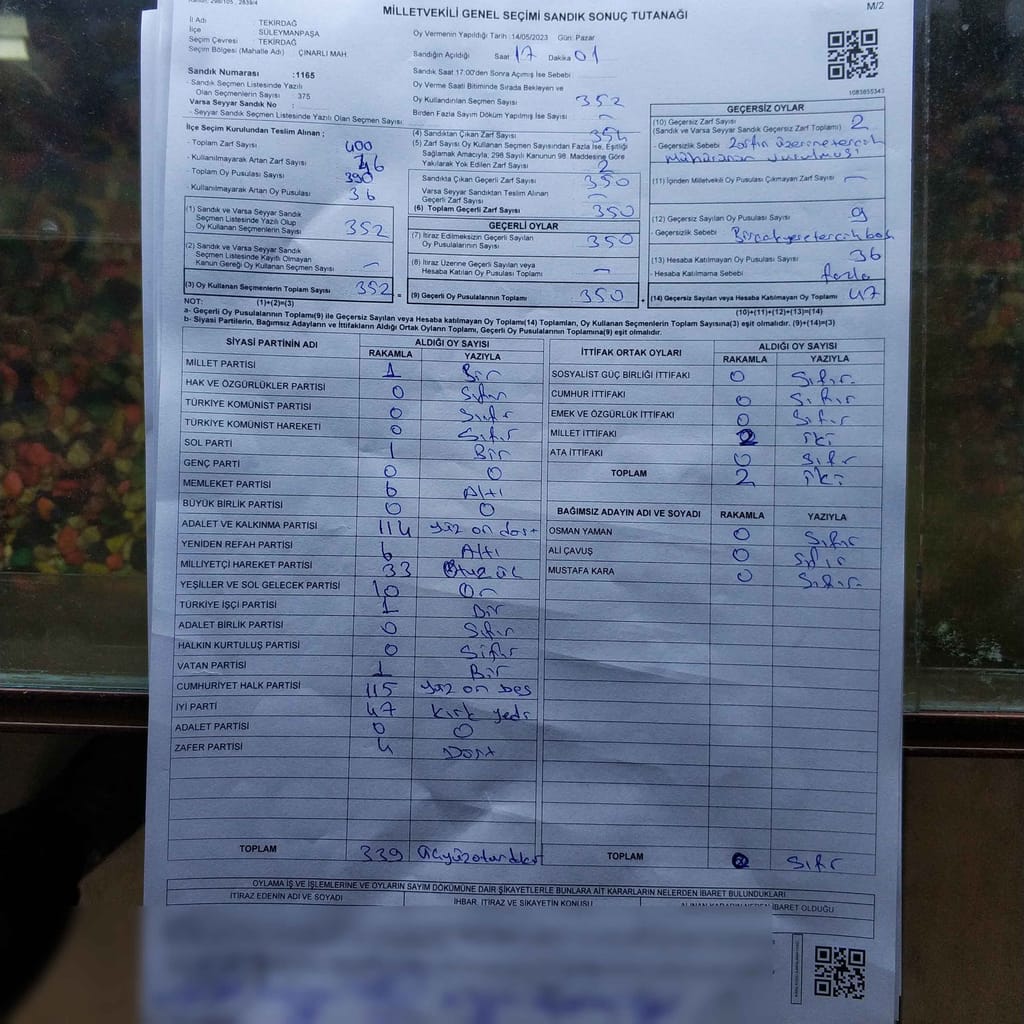 MİLLETVEKİLİ GENEL SEÇİMİ SANDIK SONUÇ TUTANAĞI
M/2
İl Adı : TEKİRDAĞ
İlçe : SÜLEYMANPAŞA
Seçim Çevresi : TEKİRDAĞ
Seçim Bölgesi (Mahalle Adı) ÇINARLI MAH.
Sandık Numarası : 1165
- Sandık Seçmen Listesinde Yazılı
Olan Seçmenlerin Sayısı 375
Varsa Seyyar Sandık No :
- Seyyar Seçmen Listesinde Yazılı Olan Seçmen Sayısı
İlçe Seçim Kurulundan Teslim Alınan ;
- Toplam Zarf Sayısı 400
- Kullanılmayarak Artan Zarf Sayısı 46
- Toplam Oy Pusulası Sayısı 390
- Kullanılmayarak Artan Oy Pusulası 36
(1) Sandık ve Varsa Seyyar Sandık
Seçmen Listesinde Yazılı Olup
Oy Kullanan Seçmenlerin Sayısı 352
(2) Sandık ve Varsa Seyyar Sandık
Seçmen Listesinde Kayıtlı Olmayan
Kanun Gereği Oy Kullanan Seçmen Sayısı –
(3) Oy Kullanan Seçmenlerin Toplam Sayısı 352 =
Oy Vermenin Yapıldığı Tarih :14/05/2023 Gün: Pazar
Sandığın Açıldığı Saat 17 Dakika 01
Sandık Saat 17:00'den Sonra Açılmış İse Sebebi
Oy Verme Saati Bitiminde Sırada Bekleyen ve
Oy Kullandırılan Seçmen Sayısı 352
Birden Fazla Sayım Döküm Yapılmış İse Sayısı –
(4) Sandıktan Çıkan Zarf Sayısı 354
(5) Zarf Sayısı Oy Kullanan Seçmen Sayısından Fazla İse, Eşitliği
Sağlamak Amacıyla, 298 Sayılı Kanunun 98. Maddesine Göre
Yakılarak Yok Edilen Zarf Sayısı 2
Sandıkta Çıkan Geçerli Zarf Sayısı 350
Varsa Seyyar Sandıktan Teslim Alınan
Geçerli Zarf Sayısı –
(6) Toplam Geçerli Zarf Sayısı 350
GEÇERLİ OYLAR
(7) İtiraz Edilmeksizin Geçerli Sayılan
Oy Pusulalarının Sayısı 350
(8) İtiraz Üzerine Geçerli Sayılan veya
Hesaba Katılan Oy Pusulası Toplamı –
(9) Geçerli Oy Pusulalarının Toplamı 350 +
1083655343
GEÇERSİZ OYLAR
(10) Geçersiz Zarf Sayısı 2
(Sandık ve Varsa Seyyar Sandık Geçersiz Zarf Toplamı)
- Geçersizlik Sebebi Zarfın üzerine tercih
(11) İçinden Milletvekili Oy Pusulası Çıkmayan Zarf Sayısı –
(12) Geçersiz Sayılan Oy Pusulası Sayısı 9
- Geçersizlik Sebebi
(13) Hesaba Katılmayan Oy Pusulası Sayısı 36
- Hesaba Katılmama Sebebi fazla
(14) Geçersiz Sayılan veya Hesaba Katılmayan Oy Toplamı 47
(10)+(11)+(12)+(13)=(14)
NOT: (1)+(2)=(3)
a- Geçerli Oy Pusulalarının Toplamı(9) ile Geçersiz Sayılan veya Hesaba Katılmayan Oy Toplamı(14) Toplamları, Oy Kullanan Seçmenlerin Toplam Sayısına(3) eşit olmalıdır. (9)+(14)=(3)
b- Siyasi Partilerin, Bağımsız Adayların ve İttifakların Aldığı Ortak Oyların Toplamı, Geçerli Oy Pusulalarının Toplamına(9) eşit olmalıdır.
SİYASİ PARTİNİN ADI ALDIĞI OY SAYISI
RAKAMLA YAZIYLA
MİLLET PARTİSİ 1 Bir
HAK VE ÖZGÜRLÜKLER PARTİSİ 0 Sıfır
TÜRKİYE KOMÜNİST PARTİSİ 0 Sıfır
TÜRKİYE KOMÜNİST HAREKETİ 0 Sıfır
SOL PARTİ 1 Bir
GENÇ PARTİ 0 0
MEMLEKET PARTİSİ 6 Altı
BÜYÜK BİRLİK PARTİSİ 0 0
ADALET VE KALKINMA PARTİSİ 114 yüz on dört
YENİDEN REFAH PARTİSİ 6 Altı
MİLLİYETÇİ HAREKET PARTİSİ 33 Otuz üç
YEŞİLLER VE SOL GELECEK PARTİSİ 10 On
TÜRKİYE İŞÇİ PARTİSİ 1 Bir
ADALET BİRLİK PARTİSİ 0 Sıfır
HALKIN KURTULUŞ PARTİSİ 0 Sıfır
VATAN PARTİSİ 1 Bir
CUMHURİYET HALK PARTİSİ 115 yüz on beş
İYİ PARTİ 47 kırk yedi
ADALET PARTİSİ 0 0
ZAFER PARTİSİ 4 Dört
TOPLAM 339
İTTİFAK ORTAK OYLARI ALDIĞI OY SAYISI
RAKAMLA YAZIYLA
SOSYALİST GÜÇ BİRLİĞİ İTTİFAKI 0 Sıfır
CUMHUR İTTİFAKI 0 Sıfır
EMEK VE ÖZGÜRLÜK İTTİFAKI 0 Sıfır
MİLLET İTTİFAKI 2 iki
ATA İTTİFAKI 0 Sıfır
TOPLAM 2 iki
BAĞIMSIZ ADAYIN ADI VE SOYADI RAKAMLA YAZIYLA
OSMAN YAMAN 0 Sıfır
ALİ ÇAVUŞ 0 Sıfır
MUSTAFA KARA 0 Sıfır
TOPLAM Sıfır
OYLAMA İŞ VE İŞLEMLERİNE VE OYLARIN SAYIM DÖKÜMÜNE DAİR ŞİKAYETLERLE BUNLARA AİT KARARLARIN NELERDEN İBARET BULUNDUKLARI
İTİRAZ EDENİN ADI VE SOYADI İHBAR, İTİRAZ VE ŞİKAYETİN KONUSU ALINAN KARARIN NEDEN İBARET OLDUĞU